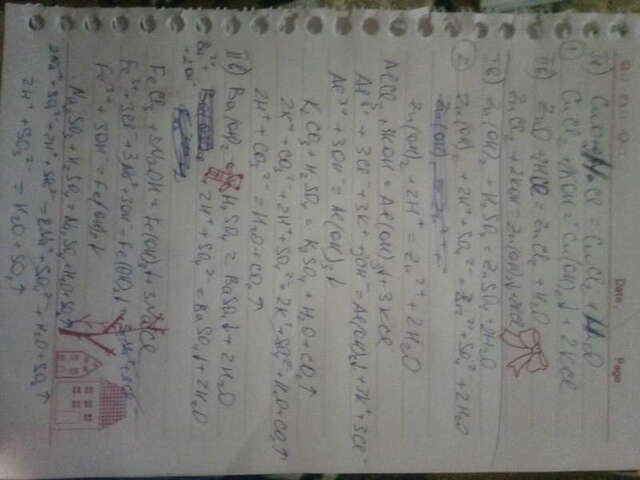 Date: Page
CuO + HCl = CuCl₂ + H₂O
CuCl₂ + KOH = Cu(OH)₂↓ + 2KCl
ZnO + HCl = ZnCl₂ + H₂O
ZnCl₂ + 2KOH = Zn(OH)₂↓
Zn(OH)₂ + H₂SO₄ = ZnSO₄ + 2H₂O
② Zn(OH)₂ + 2H⁺ + SO₄²⁻ = Zn²⁺ + SO₄²⁻ + 2H₂O
Zn(OH)₂ + 2H⁺ = Zn²⁺ + 2H₂O
AlCl₃ + 3KOH = Al(OH)₃↓ + 3KCl
Al³⁺ + 3Cl⁻ + 3K⁺ + 3OH⁻ = Al(OH)₃↓ + 3K⁺ + 3Cl⁻
Al³⁺ + 3OH⁻ = Al(OH)₃↓
K₂CO₃ + H₂SO₄ = K₂SO₄ + H₂O + CO₂↑
2K⁺ + CO₃²⁻ + 2H⁺ + SO₄²⁻ = 2K⁺ + SO₄²⁻ + H₂O + CO₂↑
2H⁺ + CO₃²⁻ = H₂O + CO₂↑
Ba(OH)₂ + H₂SO₄ = BaSO₄↓ + 2H₂O
Ba²⁺ + 2OH⁻ + 2H⁺ + SO₄²⁻ = BaSO₄↓ + 2H₂O
FeCl₃ + 3NaOH = Fe(OH)₃↓ + 3NaCl
Fe³⁺ + 3Cl⁻ + 3Na⁺ + 3OH⁻ = Fe(OH)₃↓ + 3Na⁺ + 3Cl⁻
Fe³⁺ + 3OH⁻ = Fe(OH)₃↓
Na₂SO₃ + H₂SO₄ = Na₂SO₄ + H₂O + SO₂↑
2Na⁺ + SO₃²⁻ + 2H⁺ + SO₄²⁻ = 2Na⁺ + SO₄²⁻ + H₂O + SO₂↑
2H⁺ + SO₃²⁻ = H₂O + SO₂↑